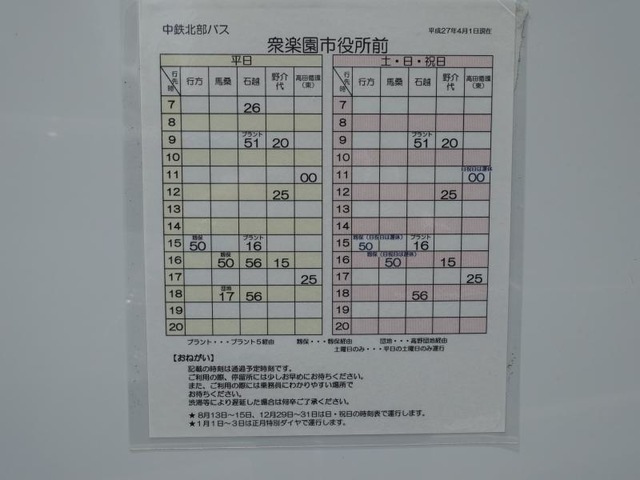 中鉄北部バス
平成27年4月1日現在
衆楽園市役所前
平日 土・日・祝日
行先 時 行方 馬桑 石越 野介代 高田循環(東) 行先 時 行方 馬桑 石越 野介代 高田循環(東)
7 26 7
8 8
プラント プラント
9 51 20 9 51 20
10 10
日祝日は運休
11 00 11 00
12 25 12 25
13 13
14 14
鶴保 プラント 鶴保(日祝日は運休) プラント
15 50 16 15 50 16
鶴保 鶴保(日祝日は運休)
16 50 56 15 16 50 15
17 25 17 25
団地
18 17 56 18 56
19 19
20 20
プラント・・・プラント5経由 鶴保・・・鶴保経由 団地・・・高野団地経由
土曜日のみ・・・平日の土曜日のみ運行
【おねがい】
記載の時刻は通過予定時刻です。
ご利用の際、停留所には少しお早めにお待ちください。
また、ご利用の際には乗務員にわかりやすい場所で
お待ちください。
渋滞等により遅延した場合は何卒ご了承ください。
★8月13日～15日、12月29日～31日は日・祝日の時刻表で運行します。
★1月1日～3日は正月特別ダイヤで運行します。